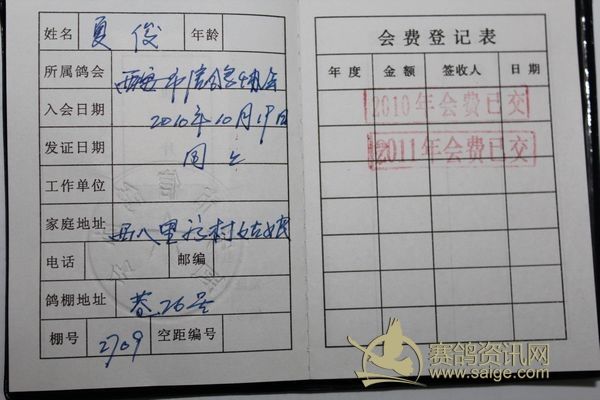 姓名 夏俊 年龄
所属鸽会 西安市信鸽协会
入会日期 2010年10月19日
发证日期 同上
工作单位
家庭地址 西八里新村姑娘
电话 邮编
鸽棚地址 巷26号
棚号 2709 空距编号
会费登记表
年度 金额 签收人 日期
2010年会费已交
2011年会费已交
赛鸽资讯网
www.saige.com